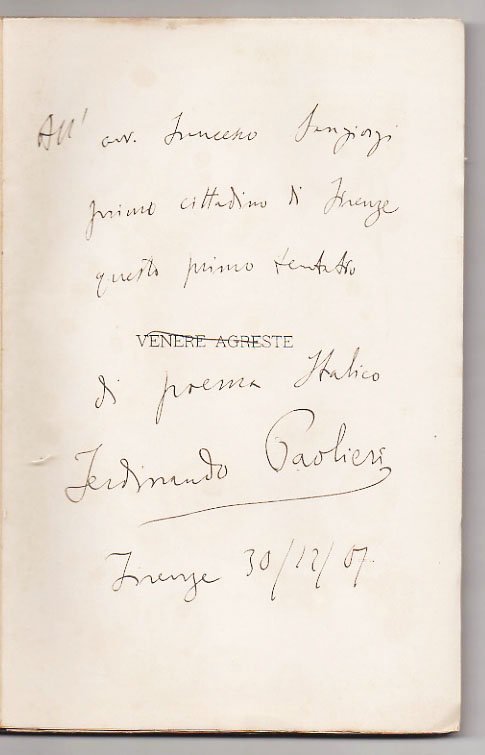 All' avv. Francesco Sangiorgi
primo cittadino di Firenze
questo primo tentativo
VENERE AGRESTE
di poema Italico
Ferdinando Paolieri
Firenze 30/12/07.